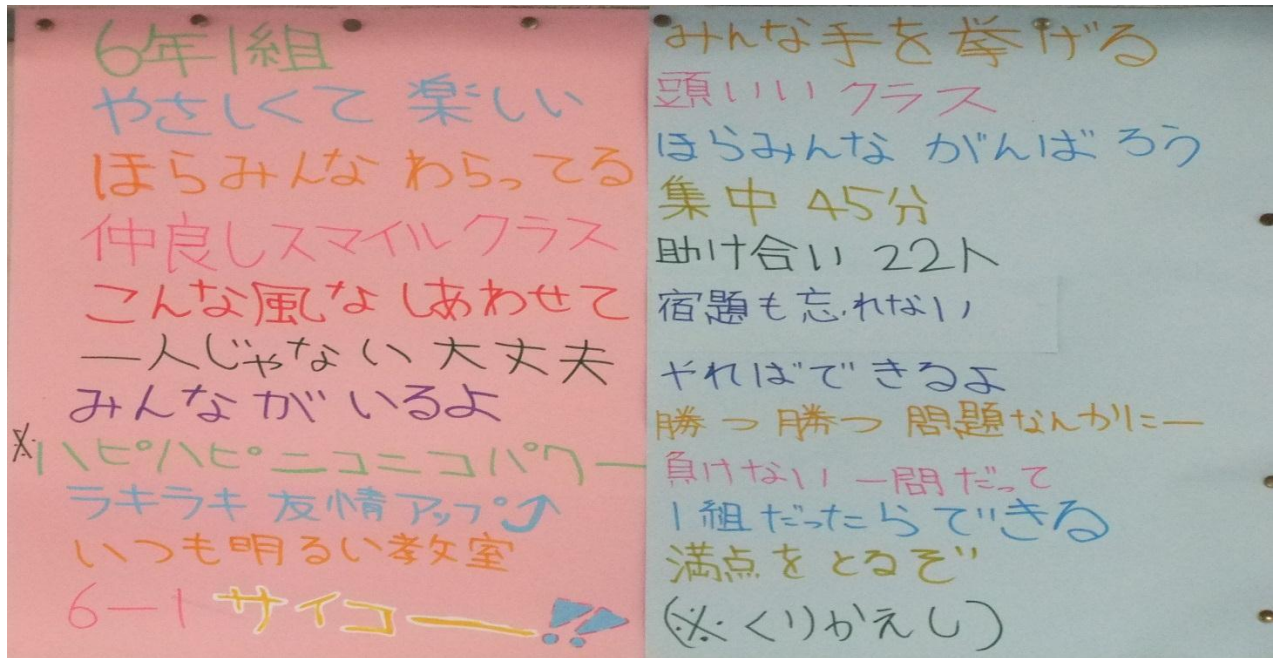 6年1組
やさしくて 楽しい
ほらみんな わらってる
仲良しスマイルクラス
こんな風な しあわせて
一人じゃない 大丈夫
みんなが いるよ
※ハピハピニコニコパワー
ラキラキ 友情アップ⤴
いつも明るい教室
6-1 サイコー!!
みんな手を挙げる
頭いい クラス
ほらみんな がんばろう
集中 45分
助け合い 22人
宿題も忘れない
やればできるよ
勝つ勝つ 問題なんかにー
負けない 一問だって
1組だったらできる
満点をとるぞ
(※くりかえし)